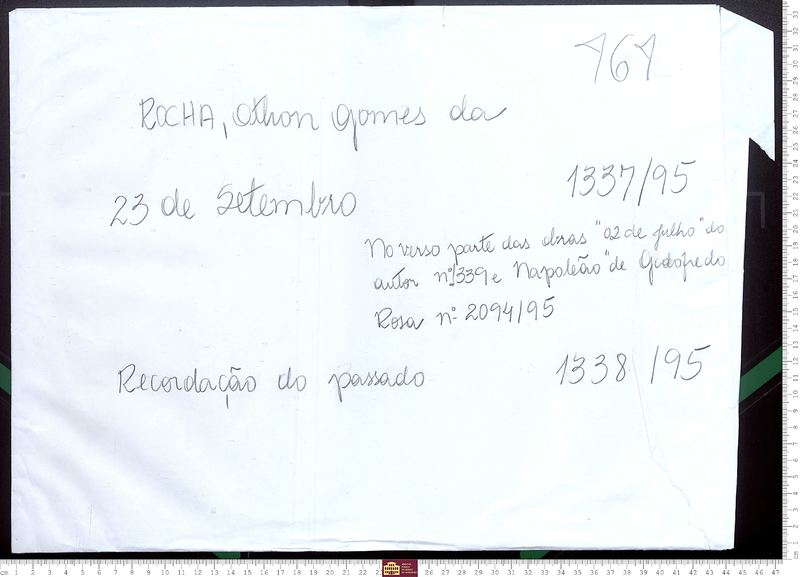 161
ROCHA, Othon Gomes da
23 de Setembro 1337/95
No verso parte das obras "02 de julho" do
autor nº 1339 e Napoleão" de Godofredo
Rosa nº 2094/95
Recordação do passado 1338/95